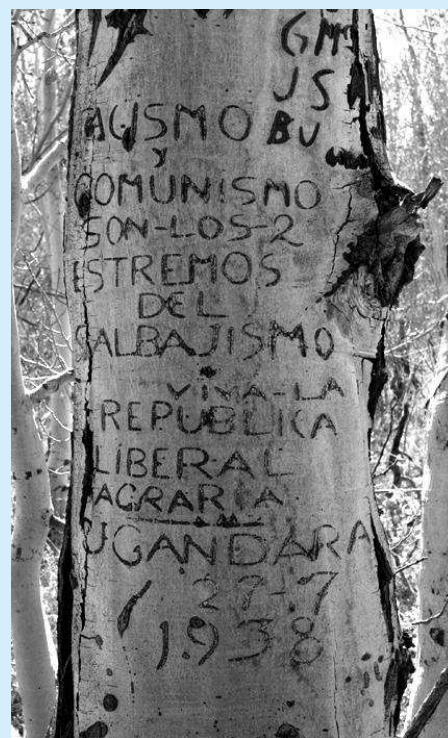 GM
JS
BU
AGISMO
Y
COMUNISMO
SON-LOS-2
ESTREMOS
DEL
SALBAJISMO
VIVA-LA
REPUBLICA
LIBERAL
AGRARIA
UGANDARA
27-7
1938